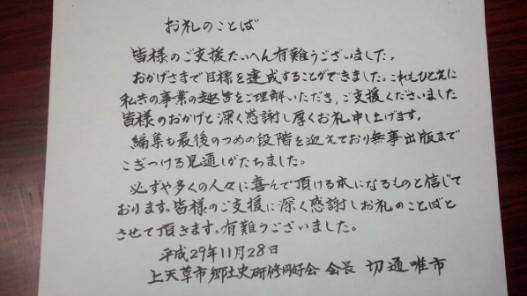 お礼のことば
皆様のご支援たいへん有難うございました。
おかげさまで目標を達成することができました。これもひとえに
私共の事業の趣旨をご理解いただき、ご支援くださいました
皆様のおかげと深く感謝し厚くお礼申し上げます。
編集も最後のつめの段階を迎えており無事出版まで
こぎつける見通しがたちました。
必ずや多くの人々に喜んで頂ける本になるものと信じて
おります。皆様のご支援に深く感謝しお礼のことばと
させて頂きます。有難うございました。
平成29年11月28日
上天草市郷土史研修同好会 会長 切通唯市